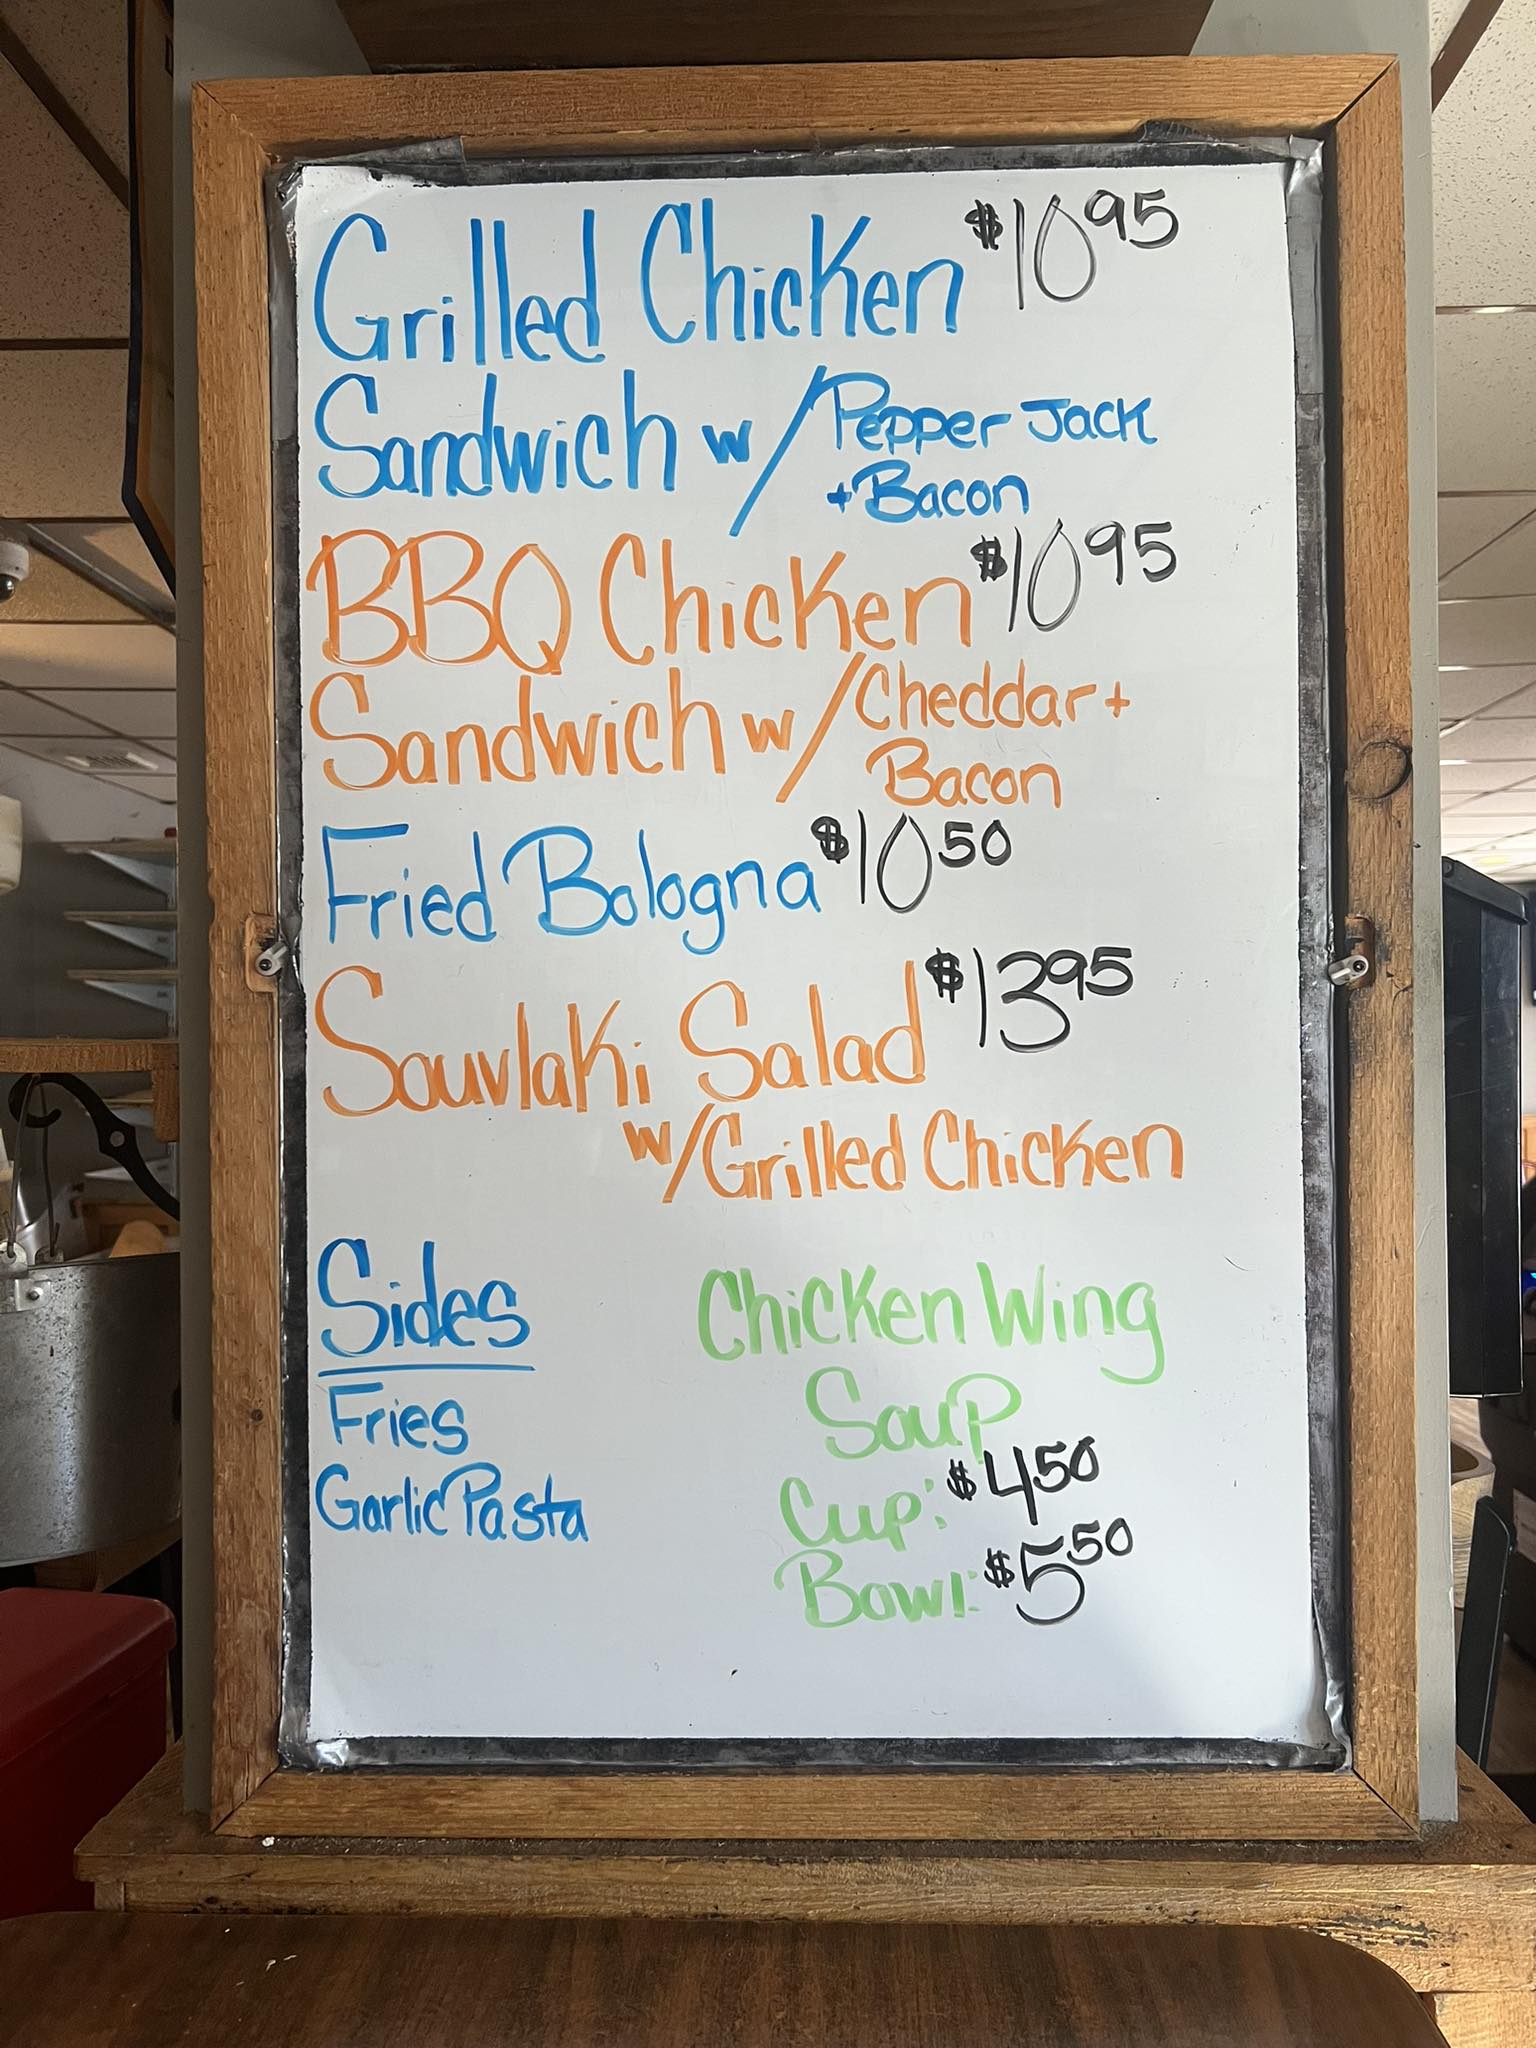 Grilled Chicken $10 95
Sandwich w/ Pepper Jack
+ Bacon
BBQ Chicken $10 95
Sandwich w/ Cheddar +
Bacon
Fried Bologna $10 50
Souvlaki Salad $13 95
w/ Grilled Chicken
Sides
Fries
Garlic Pasta
Chicken Wing
Soup
Cup: $4 50
Bowl: $5 50